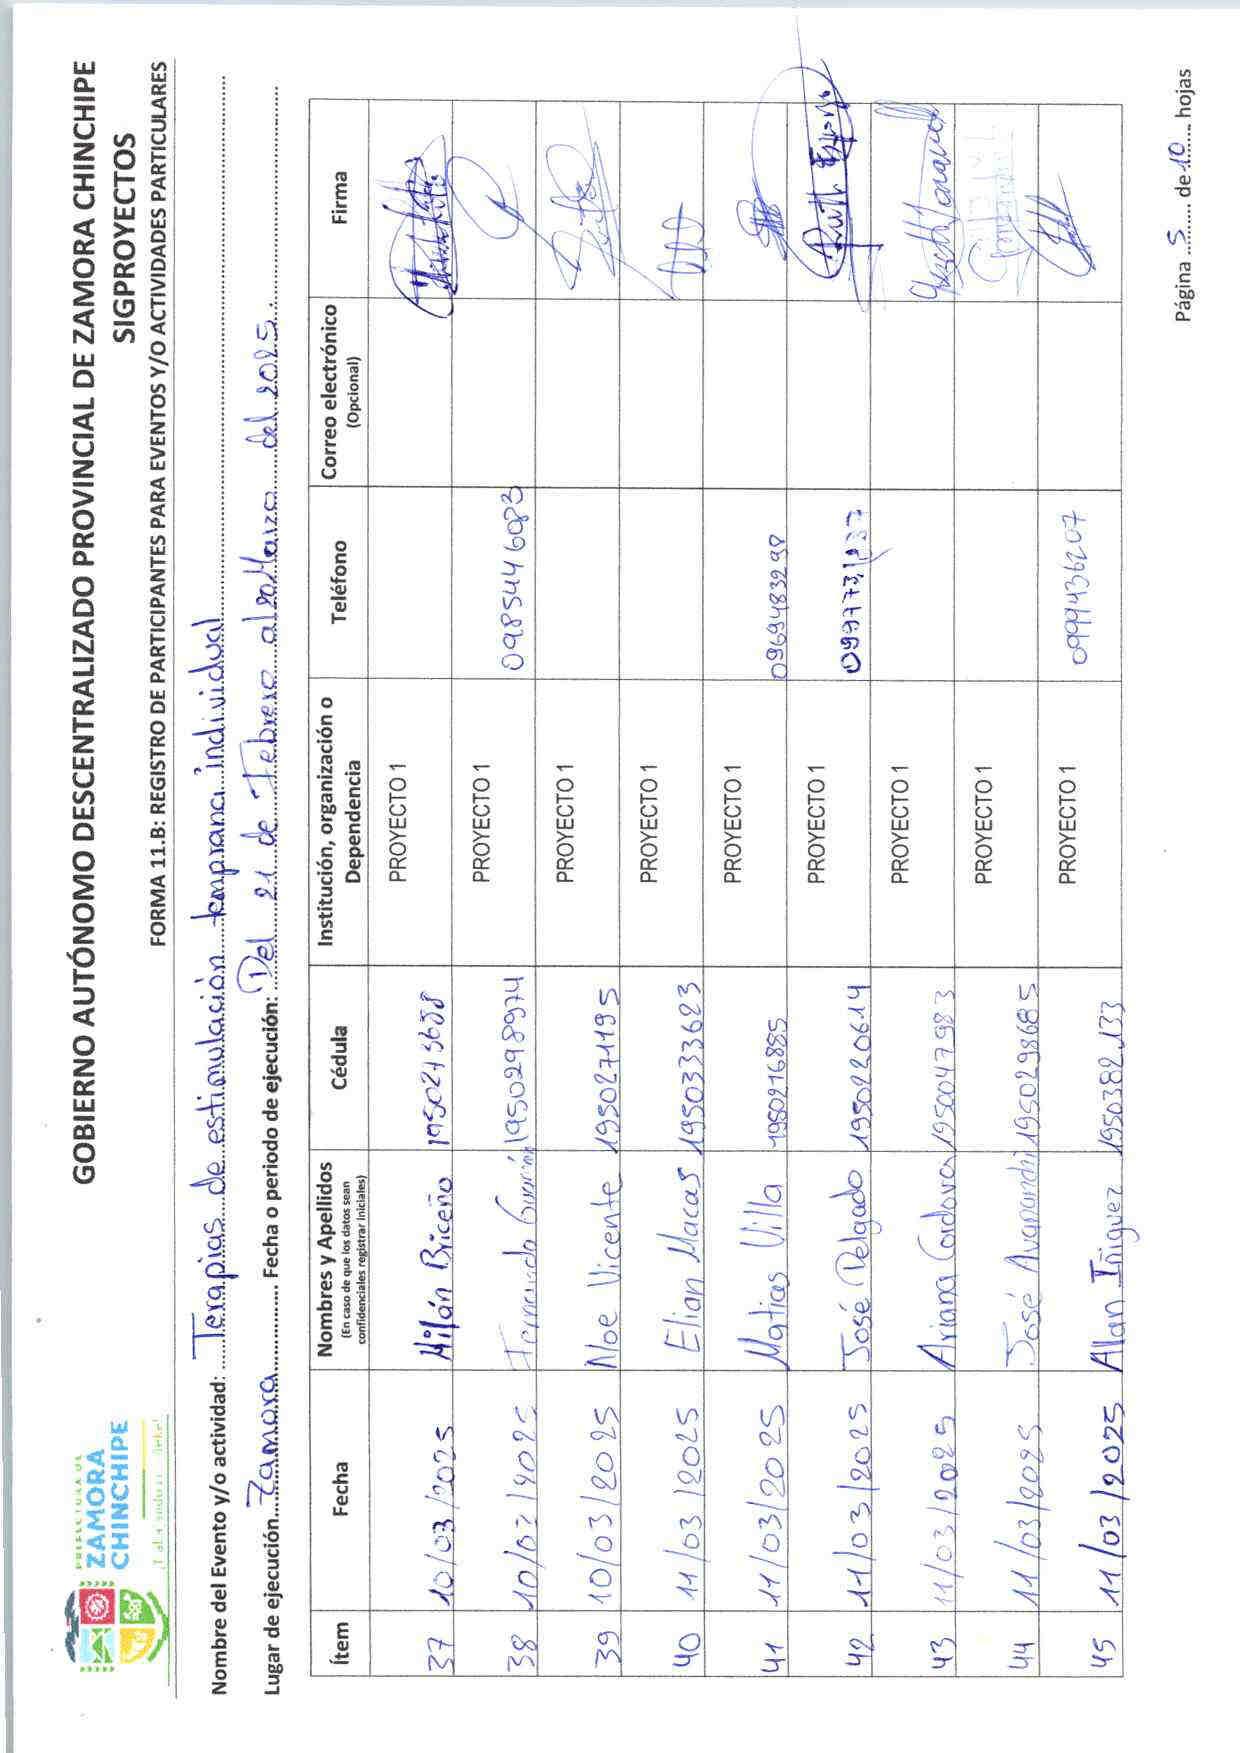 GOBIERNO AUTÓNOMO DESCENTRALIZADO PROVINCIAL DE ZAMORA CHINCHIPE
SIGPROYECTOS
FORMA 11.B: REGISTRO DE PARTICIPANTES PARA EVENTOS Y/O ACTIVIDADES PARTICULARES
PREFECTURA DE
ZAMORA
CHINCHIPE
Nombre del Evento y/o actividad: Terapias de estimulación temprana individual
Lugar de ejecución Zamora Fecha o periodo de ejecución: Del 21 de Febrero al 20 Marzo del 2025.
Ítem Fecha Nombres y Apellidos (En caso de que los datos sean confidenciales registrar iniciales) Cédula Institución, organización o Dependencia Teléfono Correo electrónico (Opcional) Firma
37 10/03/2025 Milán Briceño PROYECTO 1
38 Fernando 1950298974 PROYECTO 1 0985446083
39 10/03/2025 Noe Vicente 1950271195 PROYECTO 1
40 11/03/2025 Elian Macas 1950333623 PROYECTO 1
41 11/03/2025 Matias Villa 1950216885 PROYECTO 1 0969483298
42 11/03/2025 José Delgado 1950220614 PROYECTO 1 Ruth
43 11/03/2025 Ariana Cordova 1950047983 PROYECTO 1
44 11/03/2025 José 1950298685 PROYECTO 1
45 11/03/2025 Alan Iñiguez 1950382133 PROYECTO 1 0999436207
Página 5 de 10 hojas